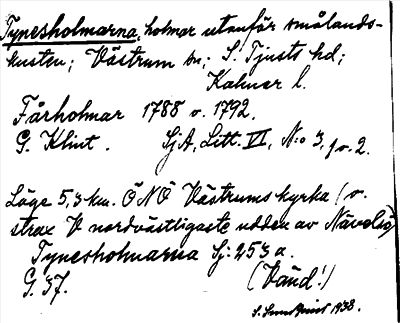 Tynesholmarna, holmar utanför smålands-
kusten; Västrum sn; S. Tjusts hd;
Kalmar l.
Fårholmar 1788 o. 1792.
G. Klint. SjA, Litt. VI, N:o 3, f o. 2.
Läge 5,3 km. ÖNÖ Västrums kyrka (o.
strax V nordvästligaste udden av Navelsö)
Tynesholmarna Sj: 253 a.
G. 37. (Vänd!)
S. Sundquist 1938.